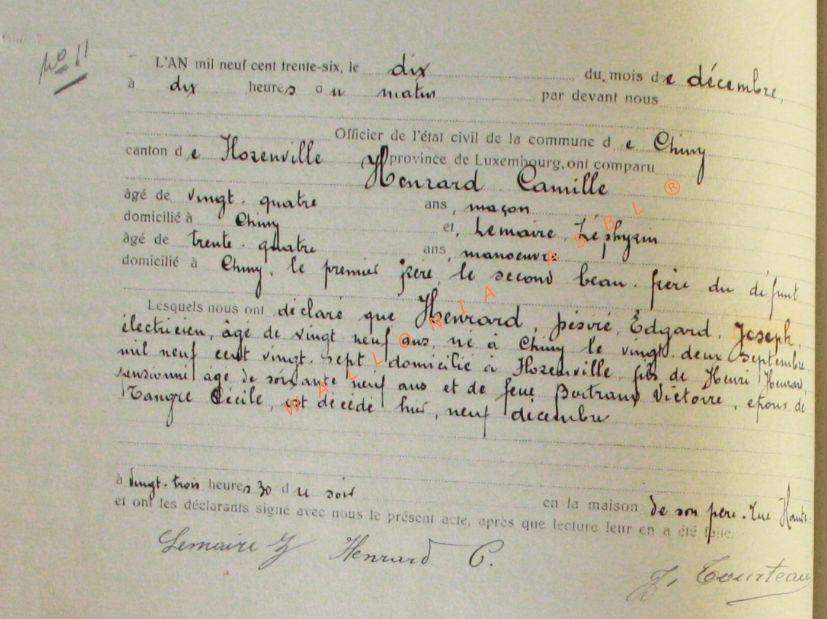 N° 11
L'AN mil neuf cent trente-six, le dix du mois de décembre,
à dix heures au matin par devant nous
Officier de l'état civil de la commune de Chiny
canton de Florenville province de Luxembourg, ont comparu
Henrard Camille
âgé de vingt-quatre ans, maçon
domicilié à Chiny et, Lemaire, Zéphyrin
âgé de trente-quatre ans, manoeuvre
domicilié à Chiny, le premier frère, le second beau-frère du défunt
Lesquels nous ont déclaré que Henrard, Désiré, Edgard, Joseph,
électricien, âgé de vingt neuf ans, né à Chiny le vingt-deux septembre
mil neuf cent vingt-sept domicilié à Florenville, fils de Henri Henrard,
pensionné âgé de soixante neuf ans et de feue Bertrand Victoire, époux de
Tangre Cécile, est décédé hier, neuf décembre
à vingt-trois heures 30 du soir en la maison de son père, rue Haute
et ont les déclarants signé avec nous le présent acte, après que lecture leur en a été faite.
Lemaire Z Henrard C.
Courteau
WALLONIA ASBL ®